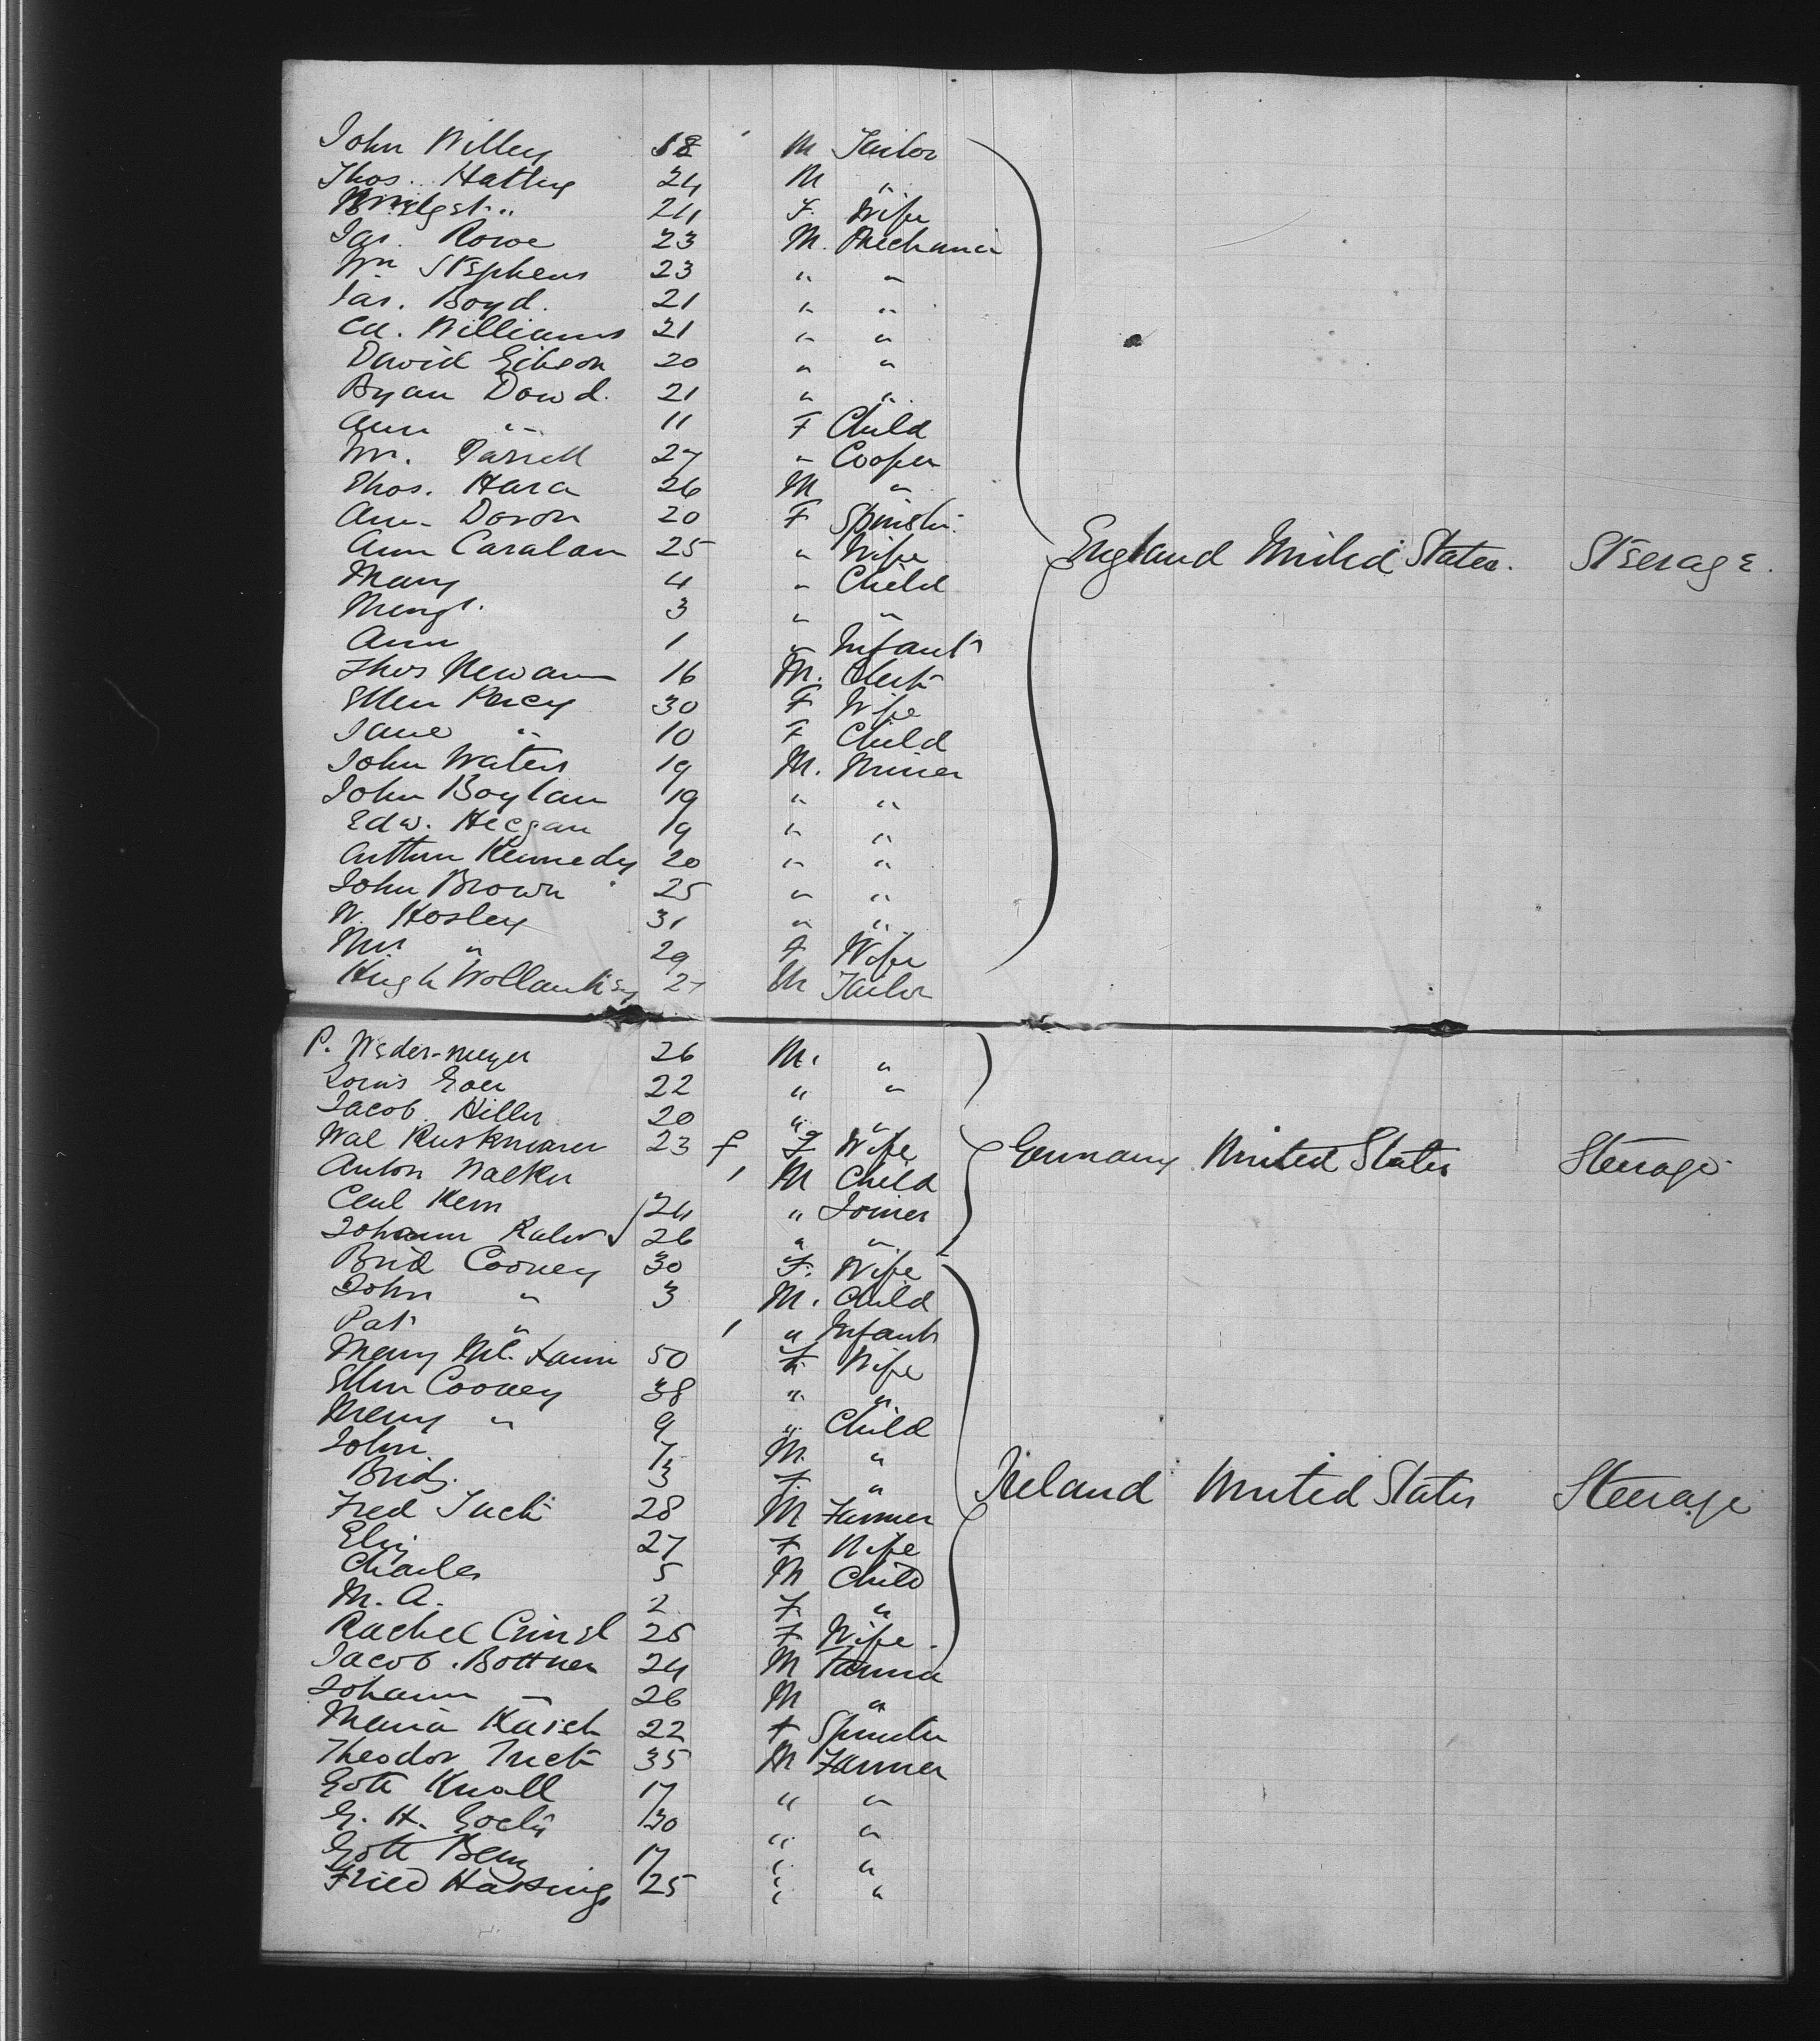 John Willey 18 M Tailor
Thos. Hattey 24 M "
" 24 F. Wife
Jas. Rowe 23 M. Mechanic
Wm Stephens 23 " "
Jas. Boyd. 21 " "
Ed. Williams 21 " "
David Gibson 20 " "
Byan Dowd. 21 " "
Ann " 11 F Child
Wm. Farrell 27 " Cooper
Thos. Hara 26 M "
Ann Doron 20 F Spinstr.
Ann Caralan 25 " Wife
England United States. Steerage.
Mary 4 " Child
Margt. 3 " "
Ann 1 " Infant
Thos Newam 16 M. Clerk
Ellen Percy 30 F Wife
Jane " 10 F Child
John Waters 19 M. Miner
John Boylan 19 " "
Edw. Heegan 19 " "
Arthur Kennedy 20 " "
John Brown 25 " "
W. Hosley 31 " "
Mrs " 29 F Wife
Hugh 27 M Tailor
P. Weder-meyer 26 M. "
Louis 22 " "
Jacob Hiller 20 " "
Wal 23 f F Wife
Germany United States Steerage
Anton Walker 1 M Child
Kern 24 " Joiner
Johann 26 " "
Brid Cooney 30 F. Wife
John " 3 M. Child
Pat " 1 " Infant
Mary 50 F. Wife
Ellen Cooney 38 " "
Mary " 9 " Child
John 7 M. "
Brid. 3 F. "
Ireland United States Steerage
Fred 28 M Farmer
Eliz 27 F Wife
Charles 5 M Child
M. A. 2 F "
Rachel 25 F Wife.
Jacob. Bottner 24 M Farmer
Johann " 26 M "
Maria 22 F Spinster
Theodor 35 M Farmer
Gott Knall 17 " "
G. H. 30 " "
Gott 17 " "
Fried 25 " "